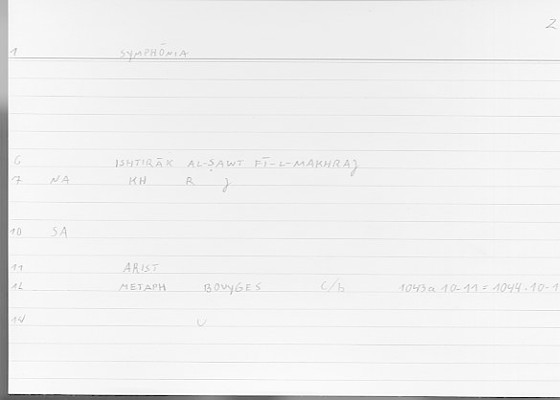 2
1 SYMPHŌNIA
6 ISHTIRĀK AL-ṢAWT FĪ-L-MAKHRAJ
7 NA KH R J
10 SA
11 ARIST
12 METAPH BOUYGES C/b 1043a 10-11 = 1044.10-1
14 U